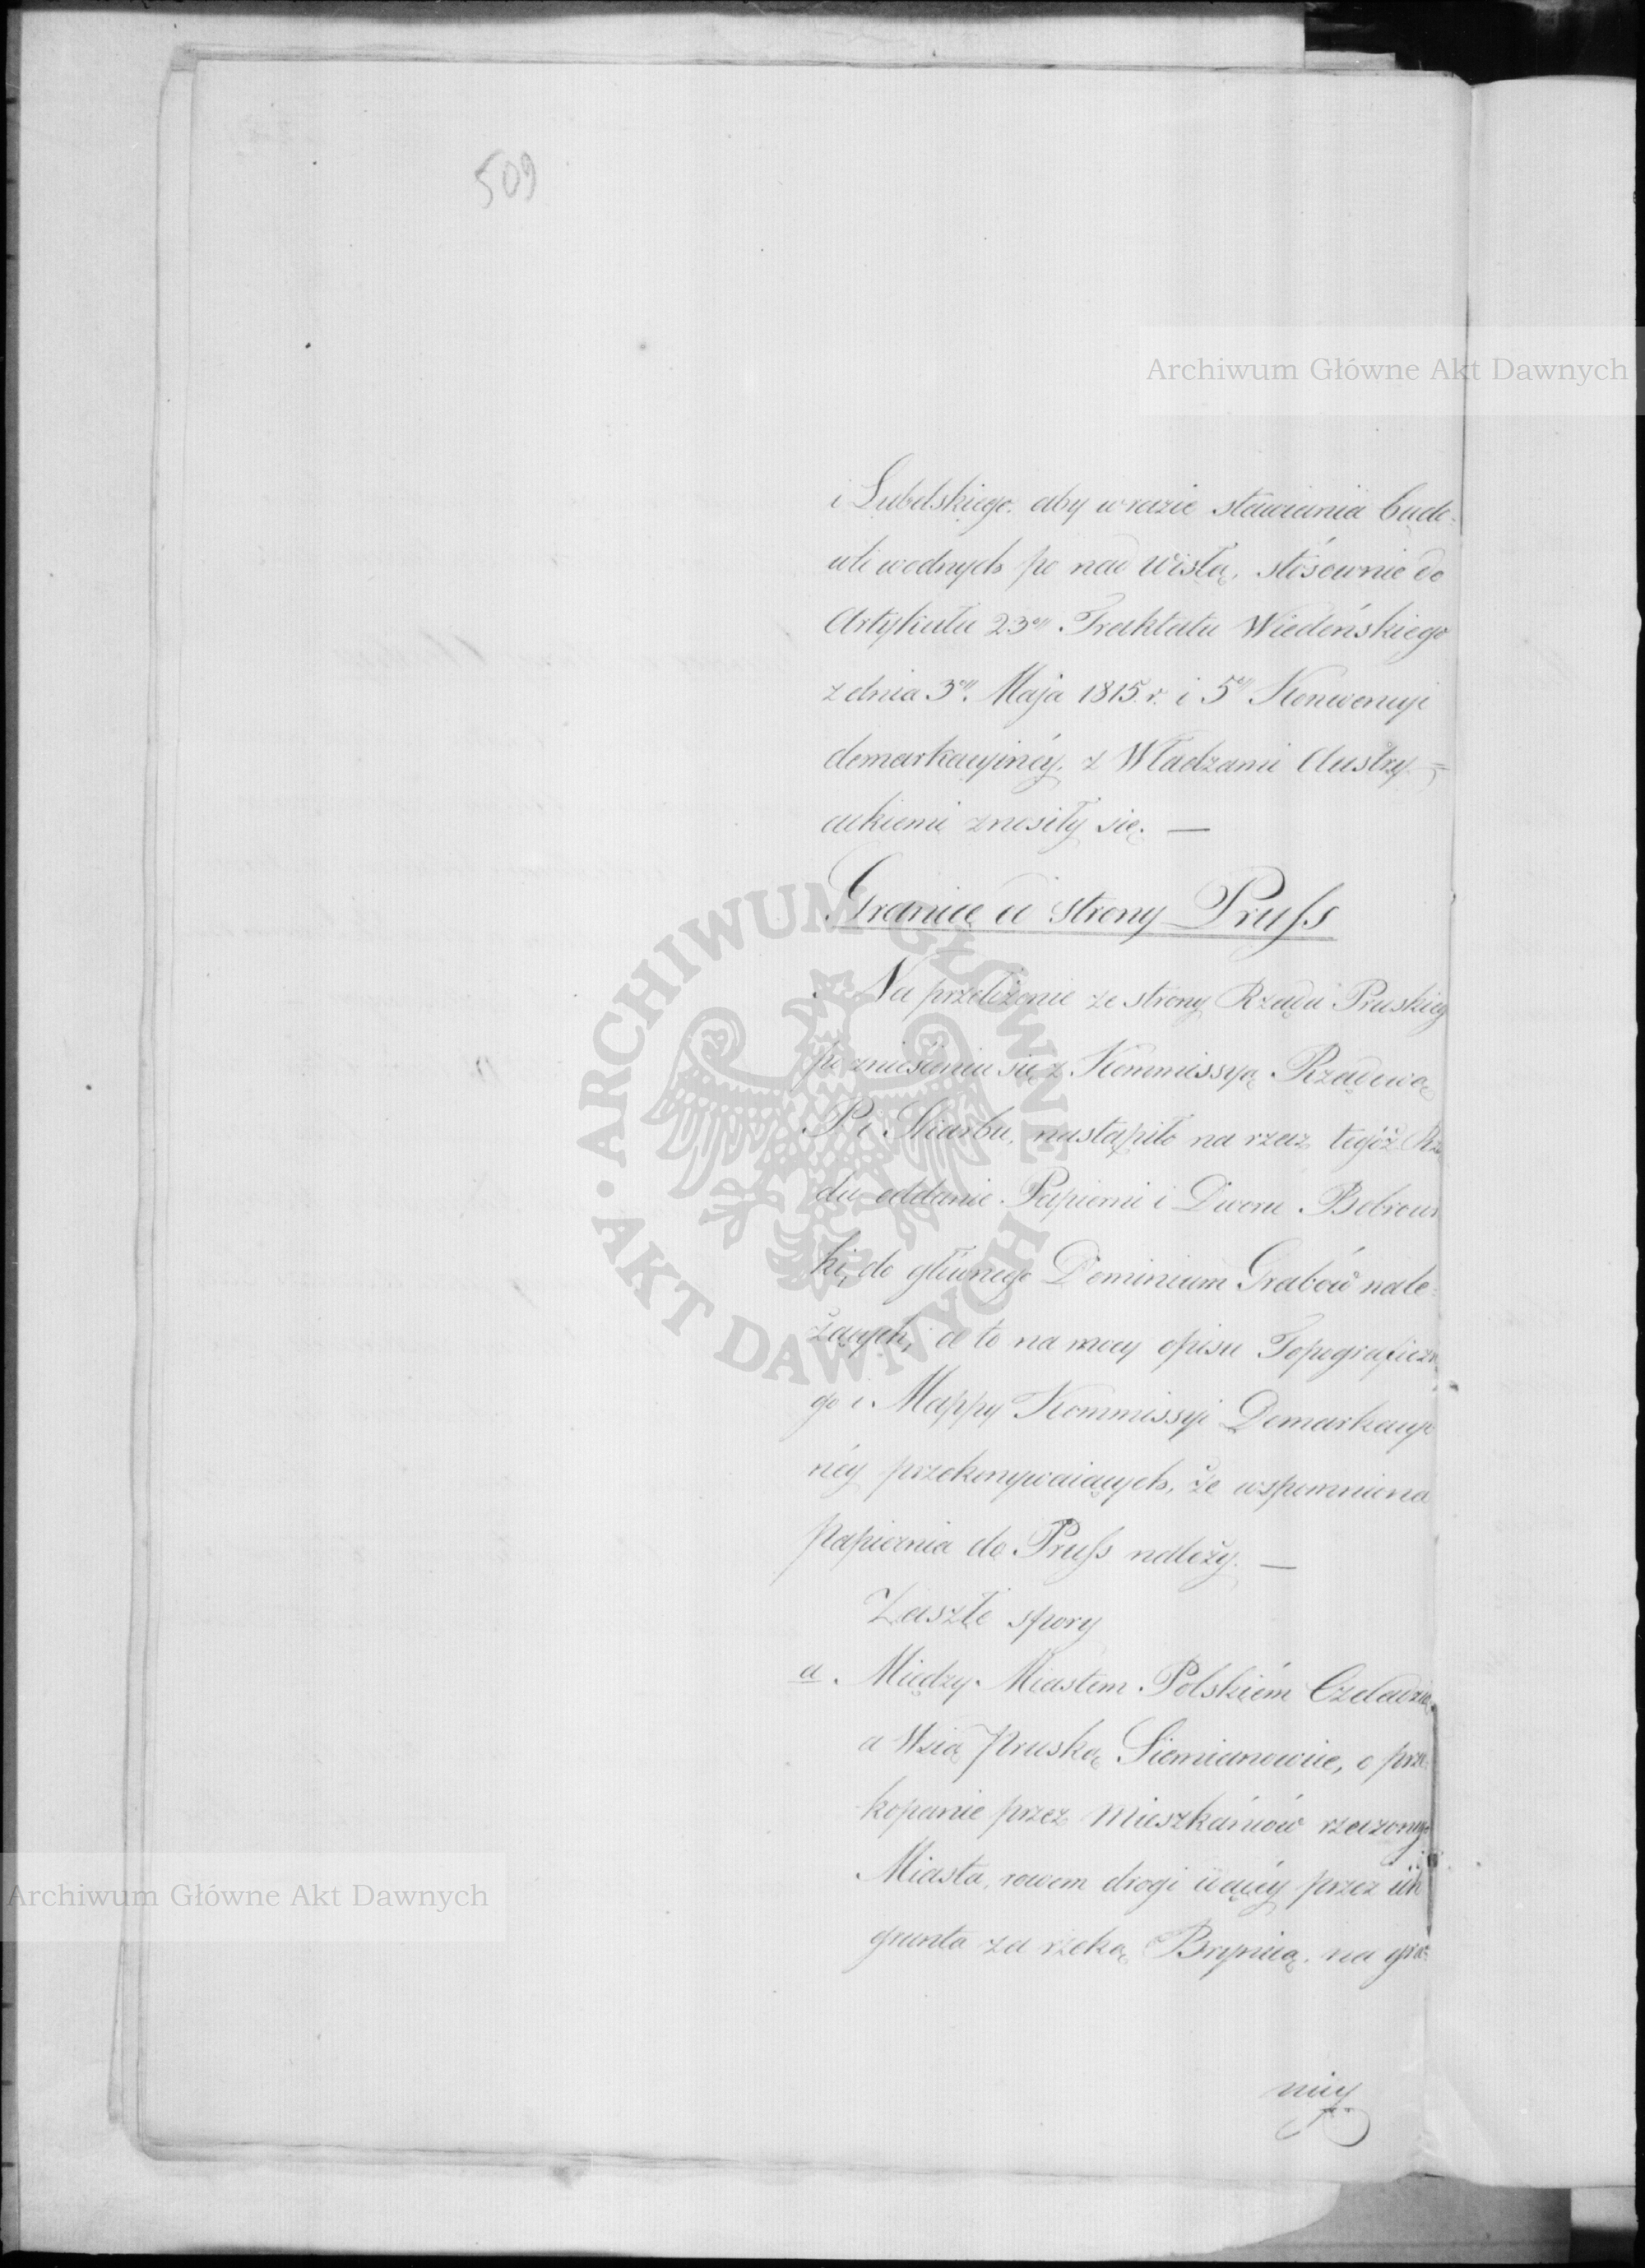 509
Archiwum Główne Akt Dawnych
i Lubelskiego, aby w razie stawiania budo-
wli wodnych po nad Wisłą, stósownie do
Artykułu 23go Traktatu Wiedeńskiego
z dnia 3go Maja 1815. r. i 5go Konwencyi
demarkacyinéy, z Władzami Austry=
ackiemi znosiły się. —
Granice od strony Pruss
Na przełożenie ze strony Rządu Pruskieg
po zniesieniu się z Kommissyą Rządową
P. i Skarbu, nastąpiło na rzecz tegoż Rzą
du oddanie Papierni i Dworu Bobrow
ki, do głównego Dominium Grabów nale-
żących, a to na mocy opisu Topograficzne
go i Mappy Kommissyi Demarkacyi
néy przekonywaiących, że wspomniona
papiernia do Pruss należy. —
Zaszłe spory
a. Między Miastem Polskiém Czeladzią
a Wsią Pruską Siemianowice, o prze-
kopanie przez Mieszkańców rzeczonego
Miasta, rowem drogi idącéy przez ich
grunta za rzeką Brynicą, na gra-
nicy
ARCHIWUM GŁÓWNE AKT DAWNYCH
Archiwum Główne Akt Dawnych